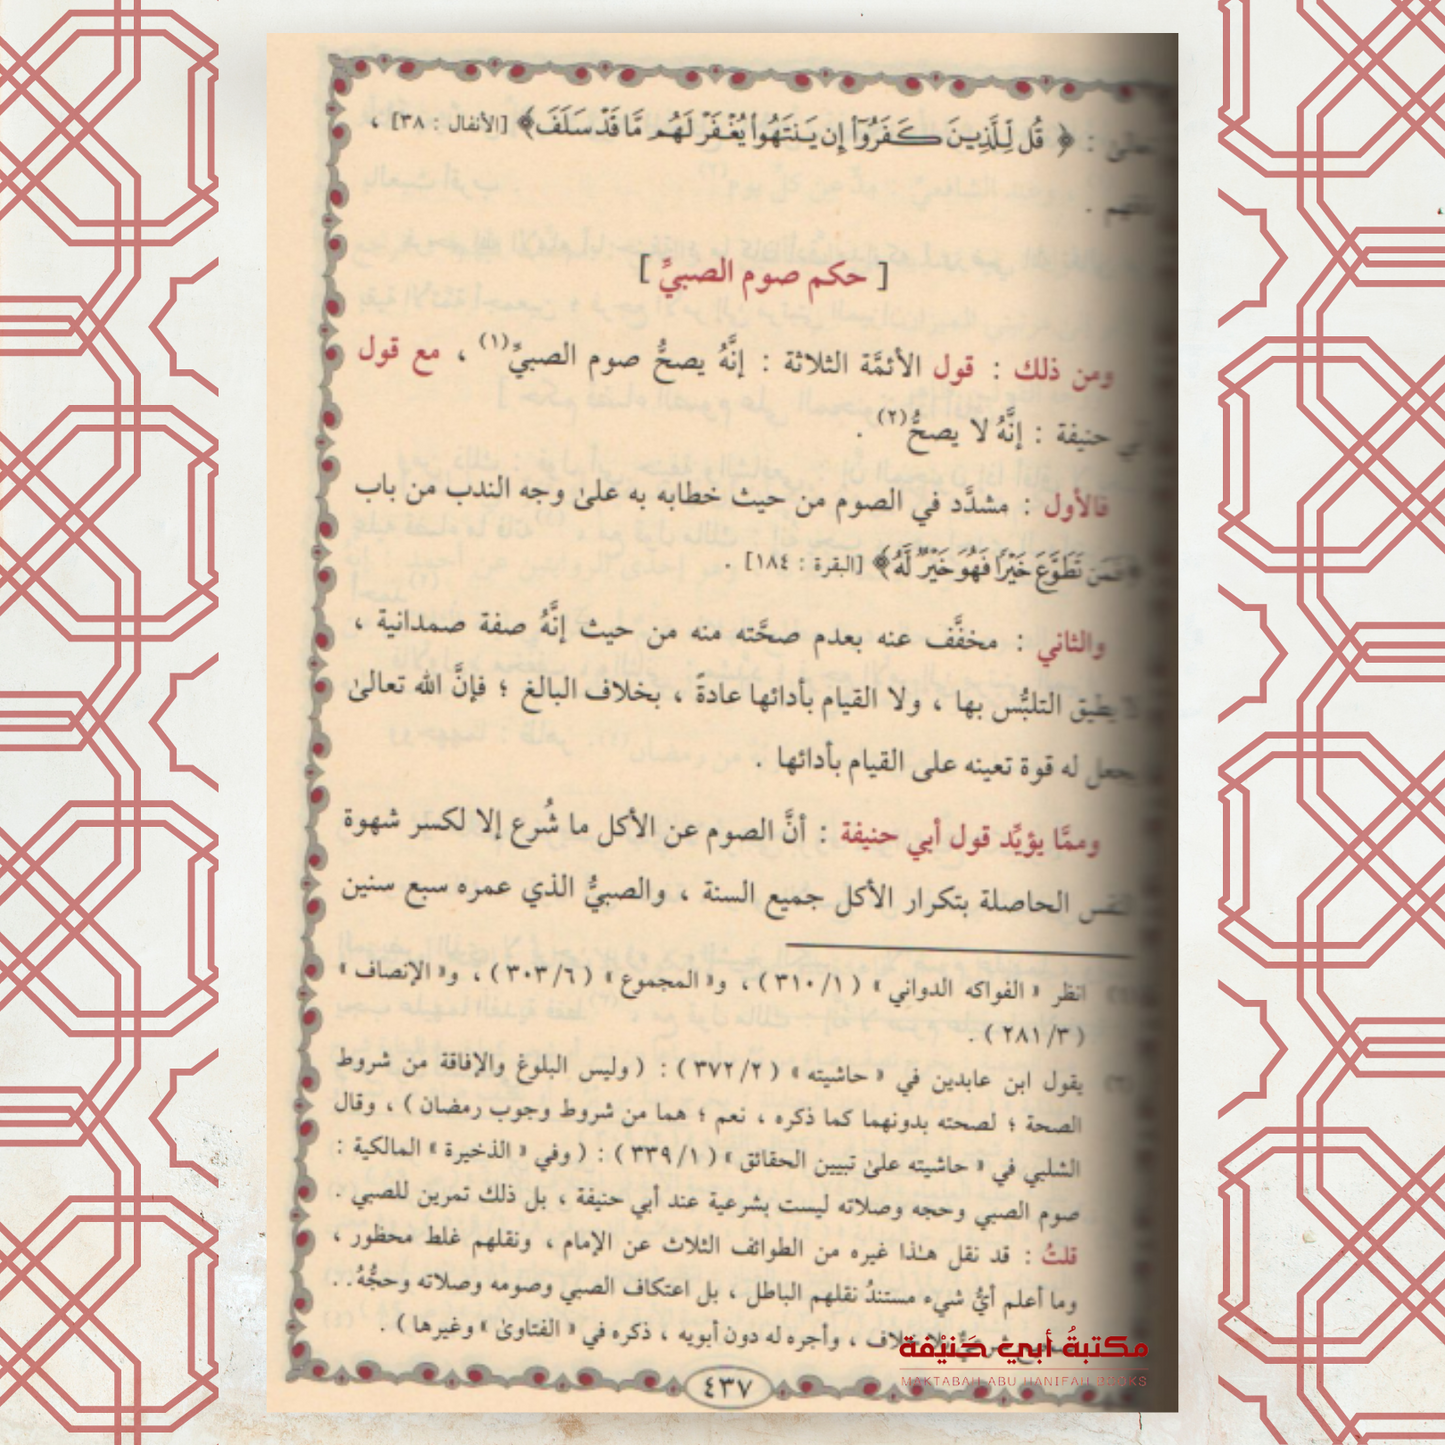 : ﴿ قُل لِّلَّذِينَ كَفَرُوٓا۟ إِن يَنتَهُوا۟ يُغْفَرْ لَهُم مَّا قَدْ سَلَفَ ﴾ [الأنفال : ٣٨] ،
[ حكم صوم الصبيِّ ]
ومن ذلك : قول الأئمَّة الثلاثة : إنَّهُ يصحُّ صوم الصبيِّ(١) ، مع قول
حنيفة : إنَّهُ لا يصحُّ(٢) .
فالأول : مشدَّد في الصوم من حيث خطابه به علىٰ وجه الندب من باب
﴿فَمَن تَطَوَّعَ خَيْرًا فَهُوَ خَيْرٌ لَّهُ﴾ [البقرة : ١٨٤] .
والثاني : مخفَّف عنه بعدم صحَّته منه من حيث إنَّهُ صفة صمدانية ،
يطيق التلبُّس بها ، ولا القيام بأدائها عادةً ، بخلاف البالغ ؛ فإنَّ الله تعالىٰ
جعل له قوة تعينه على القيام بأدائها .
وممَّا يؤيِّد قول أبي حنيفة : أنَّ الصوم عن الأكل ما شُرع إلا لكسر شهوة
النفس الحاصلة بتكرار الأكل جميع السنة ، والصبيُّ الذي عمره سبع سنين
انظر « الفواكه الدواني » ( ٣١٠/١ ) ، و« المجموع » ( ٣٠٣/٦ ) ، و« الإنصاف »
( ٢٨١/٣ ) .
يقول ابن عابدين في « حاشيته » ( ٣٧٢/٢ ) : ( وليس البلوغ والإفاقة من شروط
الصحة ؛ لصحته بدونهما كما ذكره ، نعم ؛ هما من شروط وجوب رمضان ) ، وقال
الشلبي في « حاشيته علىٰ تبيين الحقائق » ( ٣٣٩/١ ) : ( وفي « الذخيرة » المالكية :
صوم الصبي وحجه وصلاته ليست بشرعية عند أبي حنيفة ، بل ذلك تمرين للصبي .
قلتُ : قد نقل هـٰذا غيره من الطوائف الثلاث عن الإمام ، ونقلهم غلط محظور ،
وما أعلم أيُّ شيء مستندُ نقلهم الباطل ، بل اعتكاف الصبي وصومه وصلاته وحجُّهُ . .
، وأجره له دون أبويه ، ذكره في « الفتاوىٰ » وغيرها ) .
مكتبةُ أبي حَنيْفة
MAKTABAH ABU HANIFAH BOOKS
٤٣٧